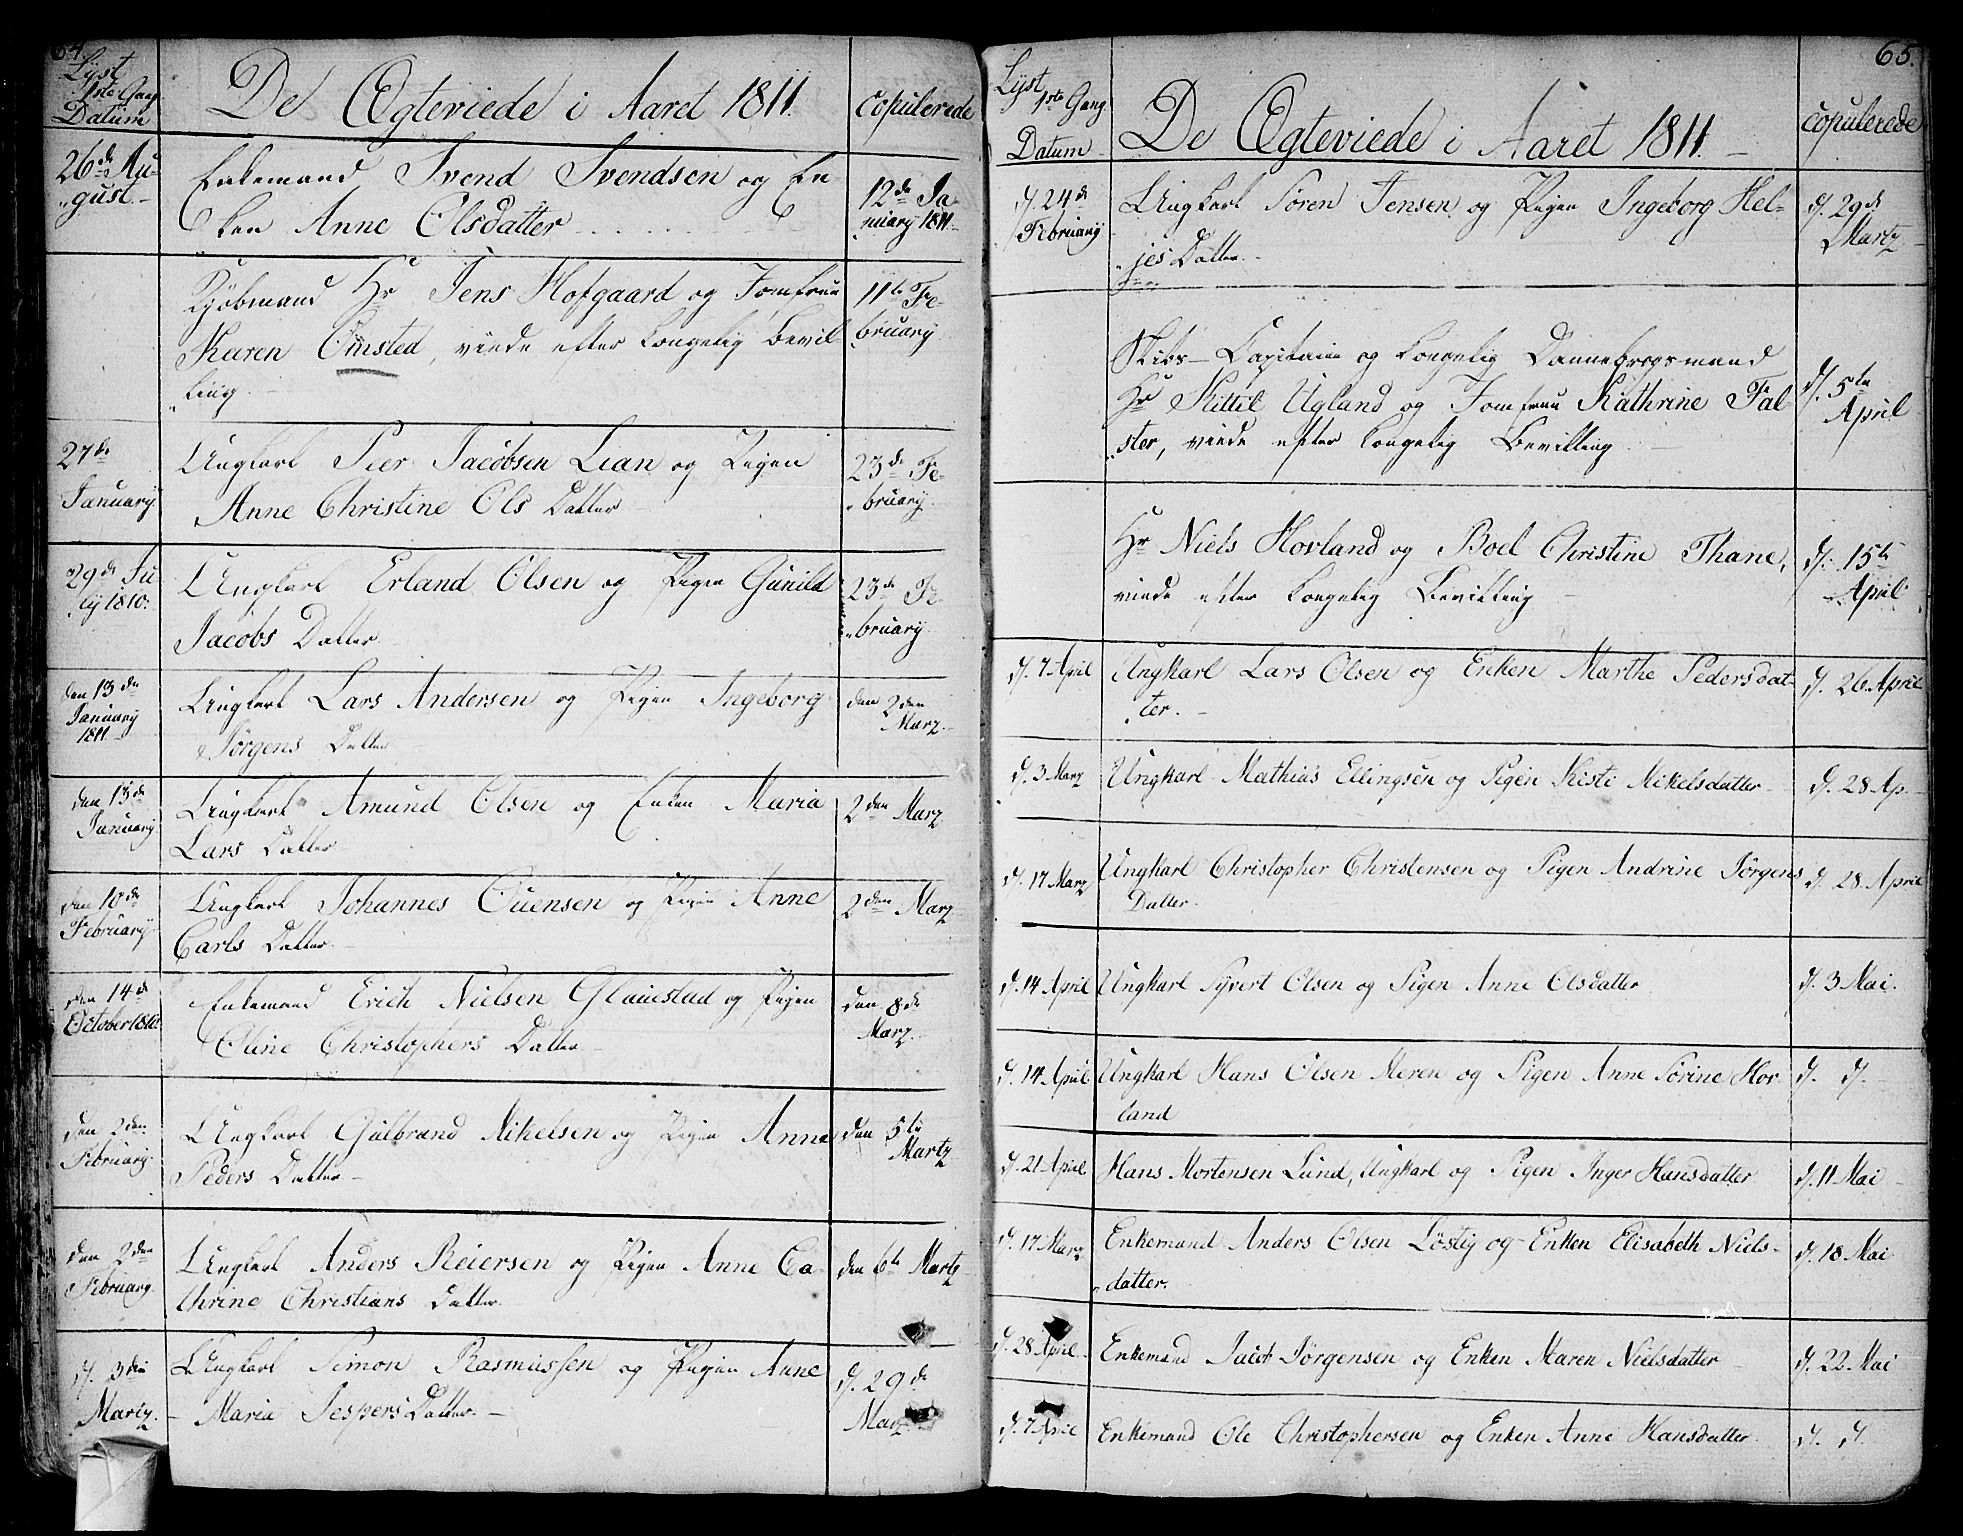 64.
Lyst
1ste Gang
Datum
De Ægteviede i Aaret 1811.
copulerede
26de Au-
gust.
Enkemand Svend Svendsen og En-
ken Anne Olsdatter
12de Ja-
nuary 1811.
Kjøbmand Hr Jens Hofgaard og Jomfrue
Karen Omsted, viede efter kongelig Bevil-
ling.
11te Fe-
bruary
27de
January.
Ungkarl Peer Jacobsen Lian og Pigen
Anne Christine Ols Datter
23de Fe-
bruary.
29de Ju
ly 1810.
Ungkarl Erland Olsen og Pigen Gunild
Jacobs Datter
23de Fe-
bruary.
den 13de
January
1811.
Ungkarl Lars Andersen og Pigen Ingeborg
Jørgens Datter
den 2den
Marz.
den 13de
January.
Ungkarl Amund Olsen og Enken Maria
Lars Datter
2den Marz
den 10de
February.
Ungkarl Johannes Ouensen og Pigen Anne
Carls Datter
2den Marz
den 14de
October 1810.
Enkemand Erich Nielsen Glauestad og Pigen
Oline Christophers Datter
den 8de
Marz.
den 2den
February.
Ungkarl Gulbrand Mikelsen og Pigen Anne
Peders Datter
den 5te
Martz
den 2den
February.
Ungkarl Anders Reiersen og Pigen Anne Ca-
thrine Christians Datter
den 6te Martz
d. 3die
Martz.
Ungkarl Simon Rasmussen og Pigen Anne
Maria Jespers Datter.
d. 29de
Marz
65.
Lyst
1ste Gang
Datum
De Ægteviede i Aaret 1811.
copulerede
d. 24de
February
Ungkarl Sören Jensen og Pigen Ingeborg Hel-
jes Datter.
d. 29de
Martz
Skibs-Capitain og kongelig Dannebrogsmand
Hr Kittil Ugland og Jomfrue Kathrine Fal-
ster, viede efter kongelig Bevilling
d. 5te
April
Hr Niels Hovland og Boel Christine Thane,
viede efter kongelig Bevilling
d. 15te
April
d. 7 April
Ungkarl Lars Olsen og Enken Marthe Pedersdat-
ter.
d. 26 April
d. 3 Marz
Ungkarl Mathias Ellingsen og Pigen Kisti Mikelsdatter
d. 28 Ap.
d. 17 Marz
Ungkarl Christopher Christensen og Pigen Andrine Jörgens
Datter.
d. 28 April
d. 14 April
Ungkarl Syvert Olsen og Pigen Anne Olsdatter
d. 3 Mai.
d. 14 April
Ungkarl Hans Olsen Meren og Pigen Anne Sörine Hov
land
d. d.
d. 21 April
Hans Mortensen Lund, Ungkarl og Pigen Inger Hansdatter
d. 11 Mai
d. 17 Marz
Enkemand Anders Olsen Löstig og Enken Elisabeth Niels-
datter.
d. 18 Mai
d. 28 April
Enkemand Jacob Jörgensen og Enken Maren Nielsdatter
d. 22 Mai
d. 7 April
Enkemand Ole Christophersen og Enken Anne Hansdatter
d. d.